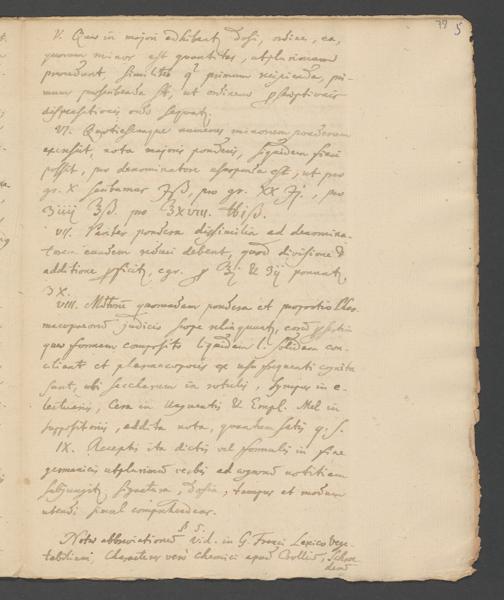 79 5
V. Quae in majori adhibentur dosi, ordine, ea,
quorum minor est quantitas, utplurimum
procedunt, similiter q primum recipienda, pri-
mum praescribenda st, ut ordinem praescriptionis
dispensationis ordo sequatur.
VI. Quotiescunque numerus minorum ponderum
excessit, nota majoris ponderis, siquidem fieri
possit, pro denominatore assumenda est, ut pro
gr. X sumamus ℈ß, pro gr. XX ℈j, pro
℈iiij ʒß. pro ℥xviii. ℔iß.
VII. Pariter pondera dissimilia ad denomina-
torem eundem reduci debent, quod divisione &
additione perficitur, e.gr. p ʒij & ℈ij ponantur
VIII. Materiae quorundam pondera et proportio Phar-
macopoeorum judicio saepe relinquuntur,
quae formam compositi liquidam l. solidam con-
stituunt et pharmacopoeis ex usu frequenti cognita
sunt, ubi saccharum in rotulis, syrupus in e-
lectuariis, Cera in Unguentis & Empl. Mel in
suppositoriis, addita nota, quantum satis q. s.
IX. Receptis ita dictis vel formulis in fine
germanicis utplurimum verbis ad aegrorum notitiam
subjungitur signatura, Dosin, tempus et modum
utendi simul comprehendens.
Notas abbreviationum vid. in G. Franci Lexico Vege-
tabilium, Characteres vero chemici apud Crollium, Schroe
derum